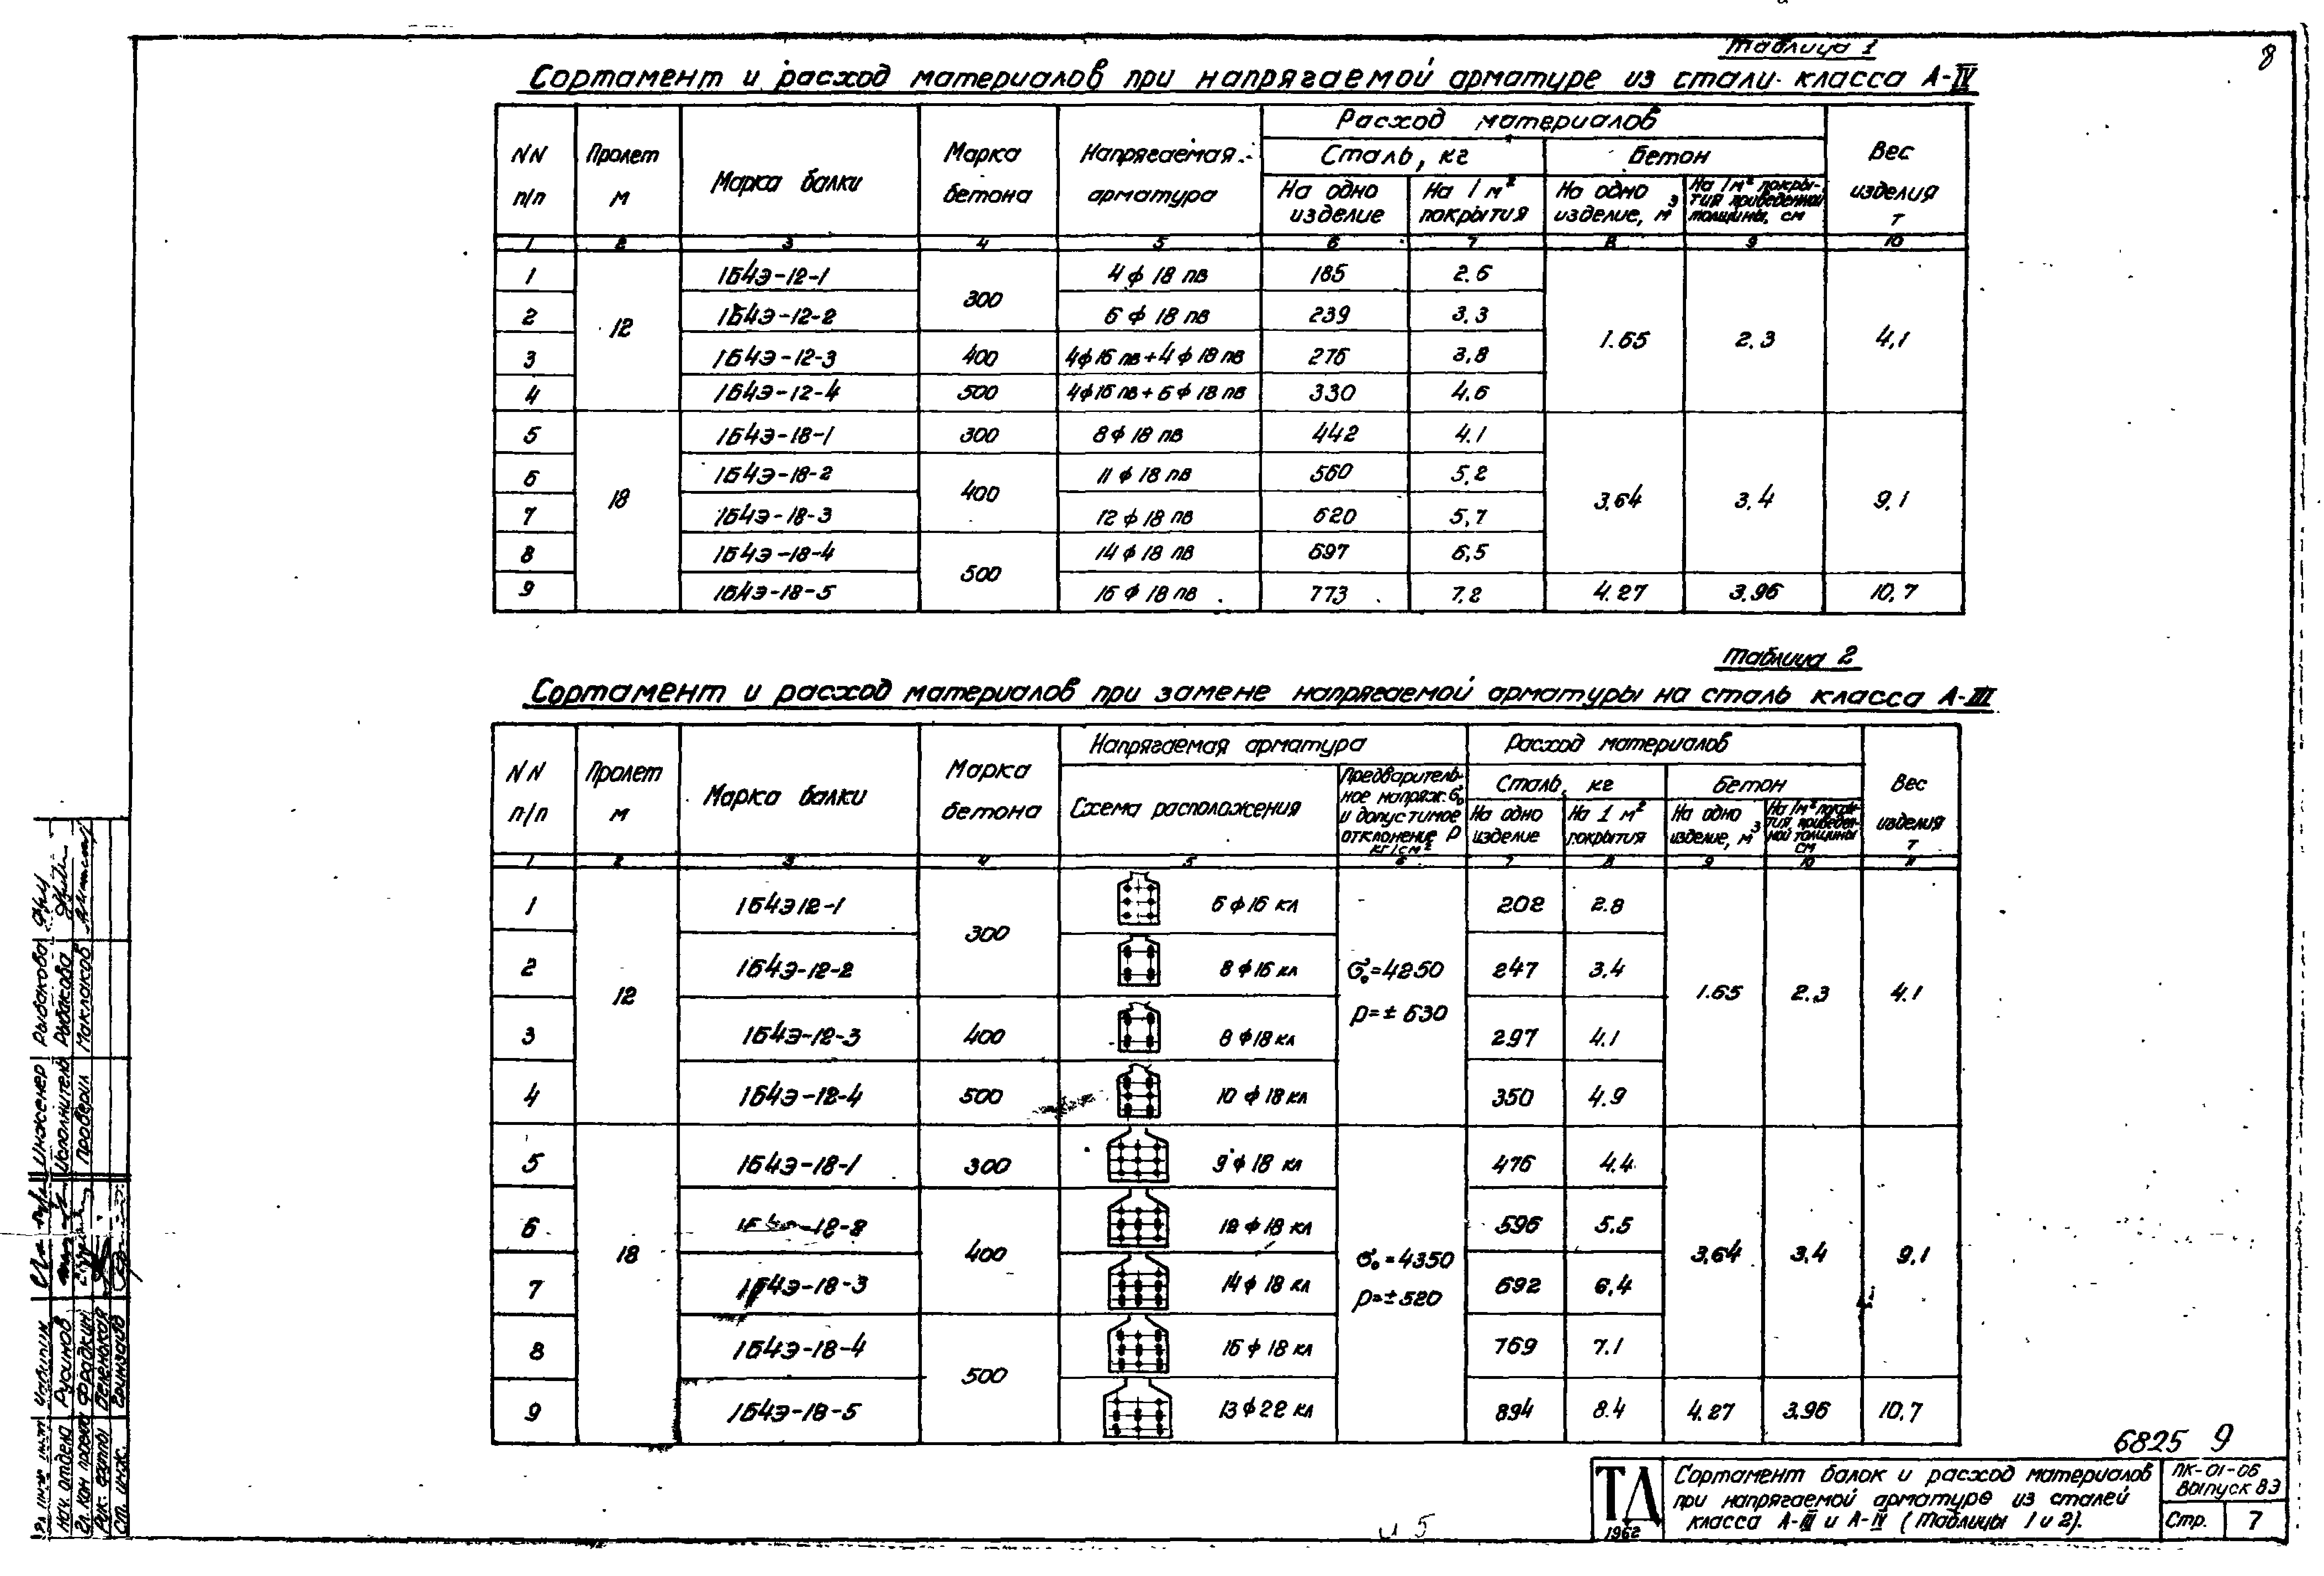 8
Таблица 1
Сортамент и расход материалов при напрягаемой арматуре из стали класса А-IV
NN п/п | Пролет м | Марка балки | Марка бетона | Напрягаемая арматура | Расход материалов | Вес изделия т
Сталь, кг | Бетон
На одно изделие | На 1 м² покрытия | На одно изделие, м³ | На 1 м² покрытия приведенной толщины, см
1 | 2 | 3 | 4 | 5 | 6 | 7 | 8 | 9 | 10
1 | 12 | 1Б4Э-12-1 | 300 | 4 ф 18 пв | 185 | 2.6 | 1.65 | 2.3 | 4,1
2 | 1Б4Э-12-2 | 6 ф 18 пв | 239 | 3.3
3 | 1Б4Э-12-3 | 400 | 4ф16 пв + 4 ф 18 пв | 276 | 3,8
4 | 1Б4Э-12-4 | 500 | 4ф16 пв + 6 ф 18 пв | 330 | 4.6
5 | 18 | 1Б4Э-18-1 | 300 | 8 ф 18 пв | 442 | 4.1 | 3.64 | 3.4 | 9,1
6 | 1Б4Э-18-2 | 400 | 11 ф 18 пв | 560 | 5,2
7 | 1Б4Э-18-3 | 12 ф 18 пв | 620 | 5,7
8 | 1Б4Э-18-4 | 500 | 14 ф 18 пв | 697 | 6,5
9 | 1Б4Э-18-5 | 16 ф 18 пв | 773 | 7,2 | 4.27 | 3.96 | 10,7
Таблица 2
Сортамент и расход материалов при замене напрягаемой арматуры на сталь класса А-III
NN п/п | Пролет м | Марка балки | Марка бетона | Напрягаемая арматура | Расход материалов | Вес изделия т
Схема расположения | Предварительное напряж. σ₀ и допустимое отклонение р кг/см² | Сталь, кг | Бетон
На одно изделие | На 1 м² покрытия | На одно изделие, м³ | На 1м² покрытия приведенной толщины см
1 | 2 | 3 | 4 | 5 | 6 | 7 | 8 | 9 | 10 | 11
1 | 12 | 1Б4Э12-1 | 300 | 6 ф 16 кл | σ₀=4250 р=± 630 | 202 | 2.8 | 1.65 | 2.3 | 4.1
2 | 1Б4Э-12-2 | 8 ф 16 кл | 247 | 3.4
3 | 1Б4Э-12-3 | 400 | 8 ф 18 кл | 297 | 4.1
4 | 1Б4Э-12-4 | 500 | 10 ф 18 кл | 350 | 4.9
5 | 18 | 1Б4Э-18-1 | 300 | 9 ф 18 кл | σ₀=4350 р=±520 | 476 | 4.4 | 3,64 | 3,4 | 9.1
6 | -18-2 | 400 | 12 ф 18 кл | 596 | 5.5
7 | 1Б4Э-18-3 | 14 ф 18 кл | 692 | 6,4
8 | 1Б4Э-18-4 | 500 | 16 ф 18 кл | 769 | 7.1
9 | 1Б4Э-18-5 | 13 ф 22 кл | 894 | 8.4 | 4.27 | 3.96 | 10,7
6825 9
ТД
1962
Сортамент балок и расход материалов
при напрягаемой арматуре из сталей
класса А-III и А-IV (таблицы 1 и 2).
ПК-01-06
Выпуск 8Э
Стр. 7
Инженер Рыбакова
Исполнитель Рыбакова
Проверил Маклаков
Нач. отдела Русинов
Гл. кон. проекта Фрадкин
Рук. группы
Ст. инж.